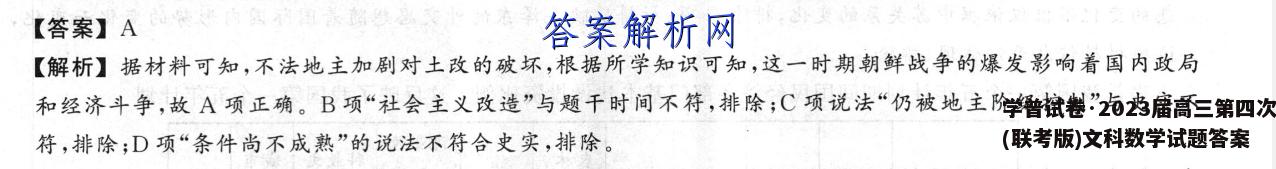 【答案】A
答案解析网
【解析】据材料可知,不法地主加剧对土改的破坏,根据所学知识可知,这一时期朝鲜战争的爆发影响着国内政局
和经济斗争,故 A 项正确。B 项“社会主义改造”与题干时间不符,排除;C 项说法“仍被地主阶
学普试卷·2023届高三第四次
符,排除;D 项“条件尚不成熟”的说法不符合史实,排除。
(联考版)文科数学试题答案